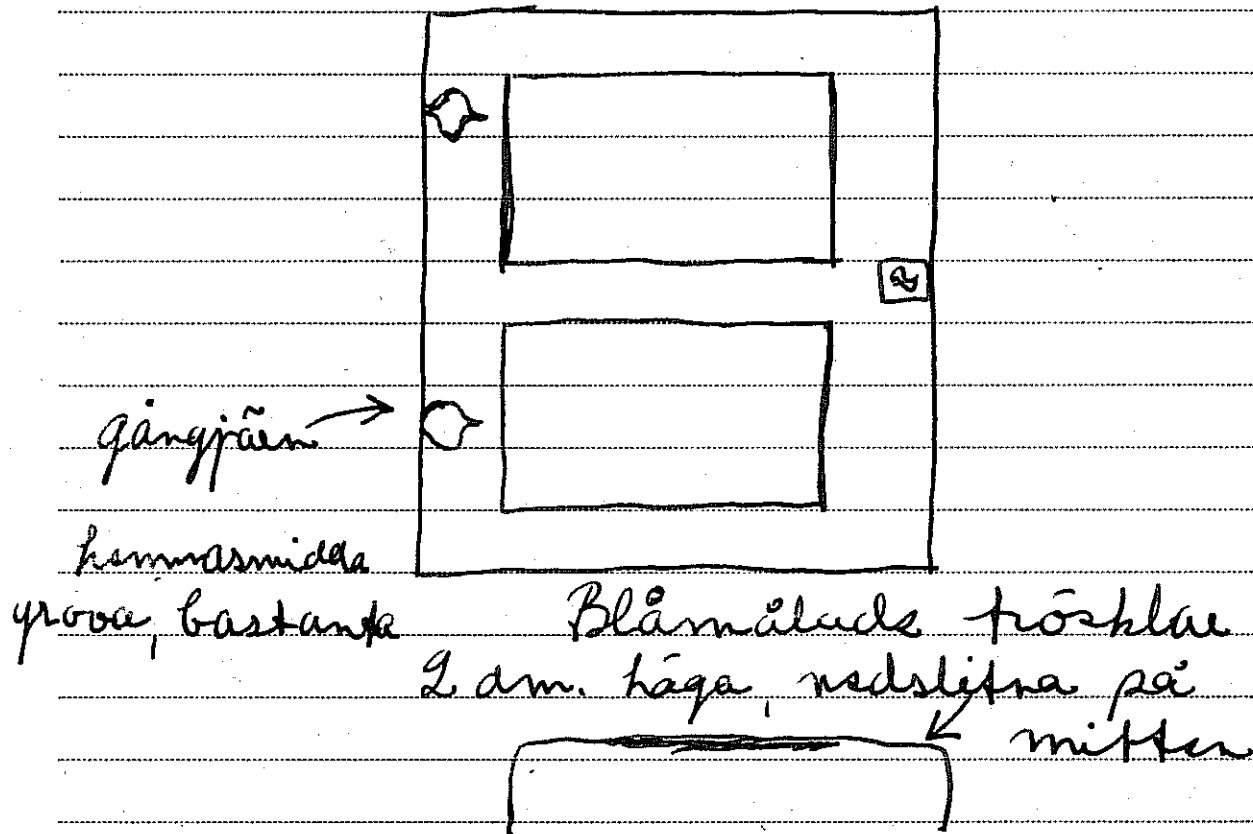 gångjärn
hemmasmidda
grova, bastanta
Blåmålade trösklar
2 dm. höga, nedslitna på
mitten